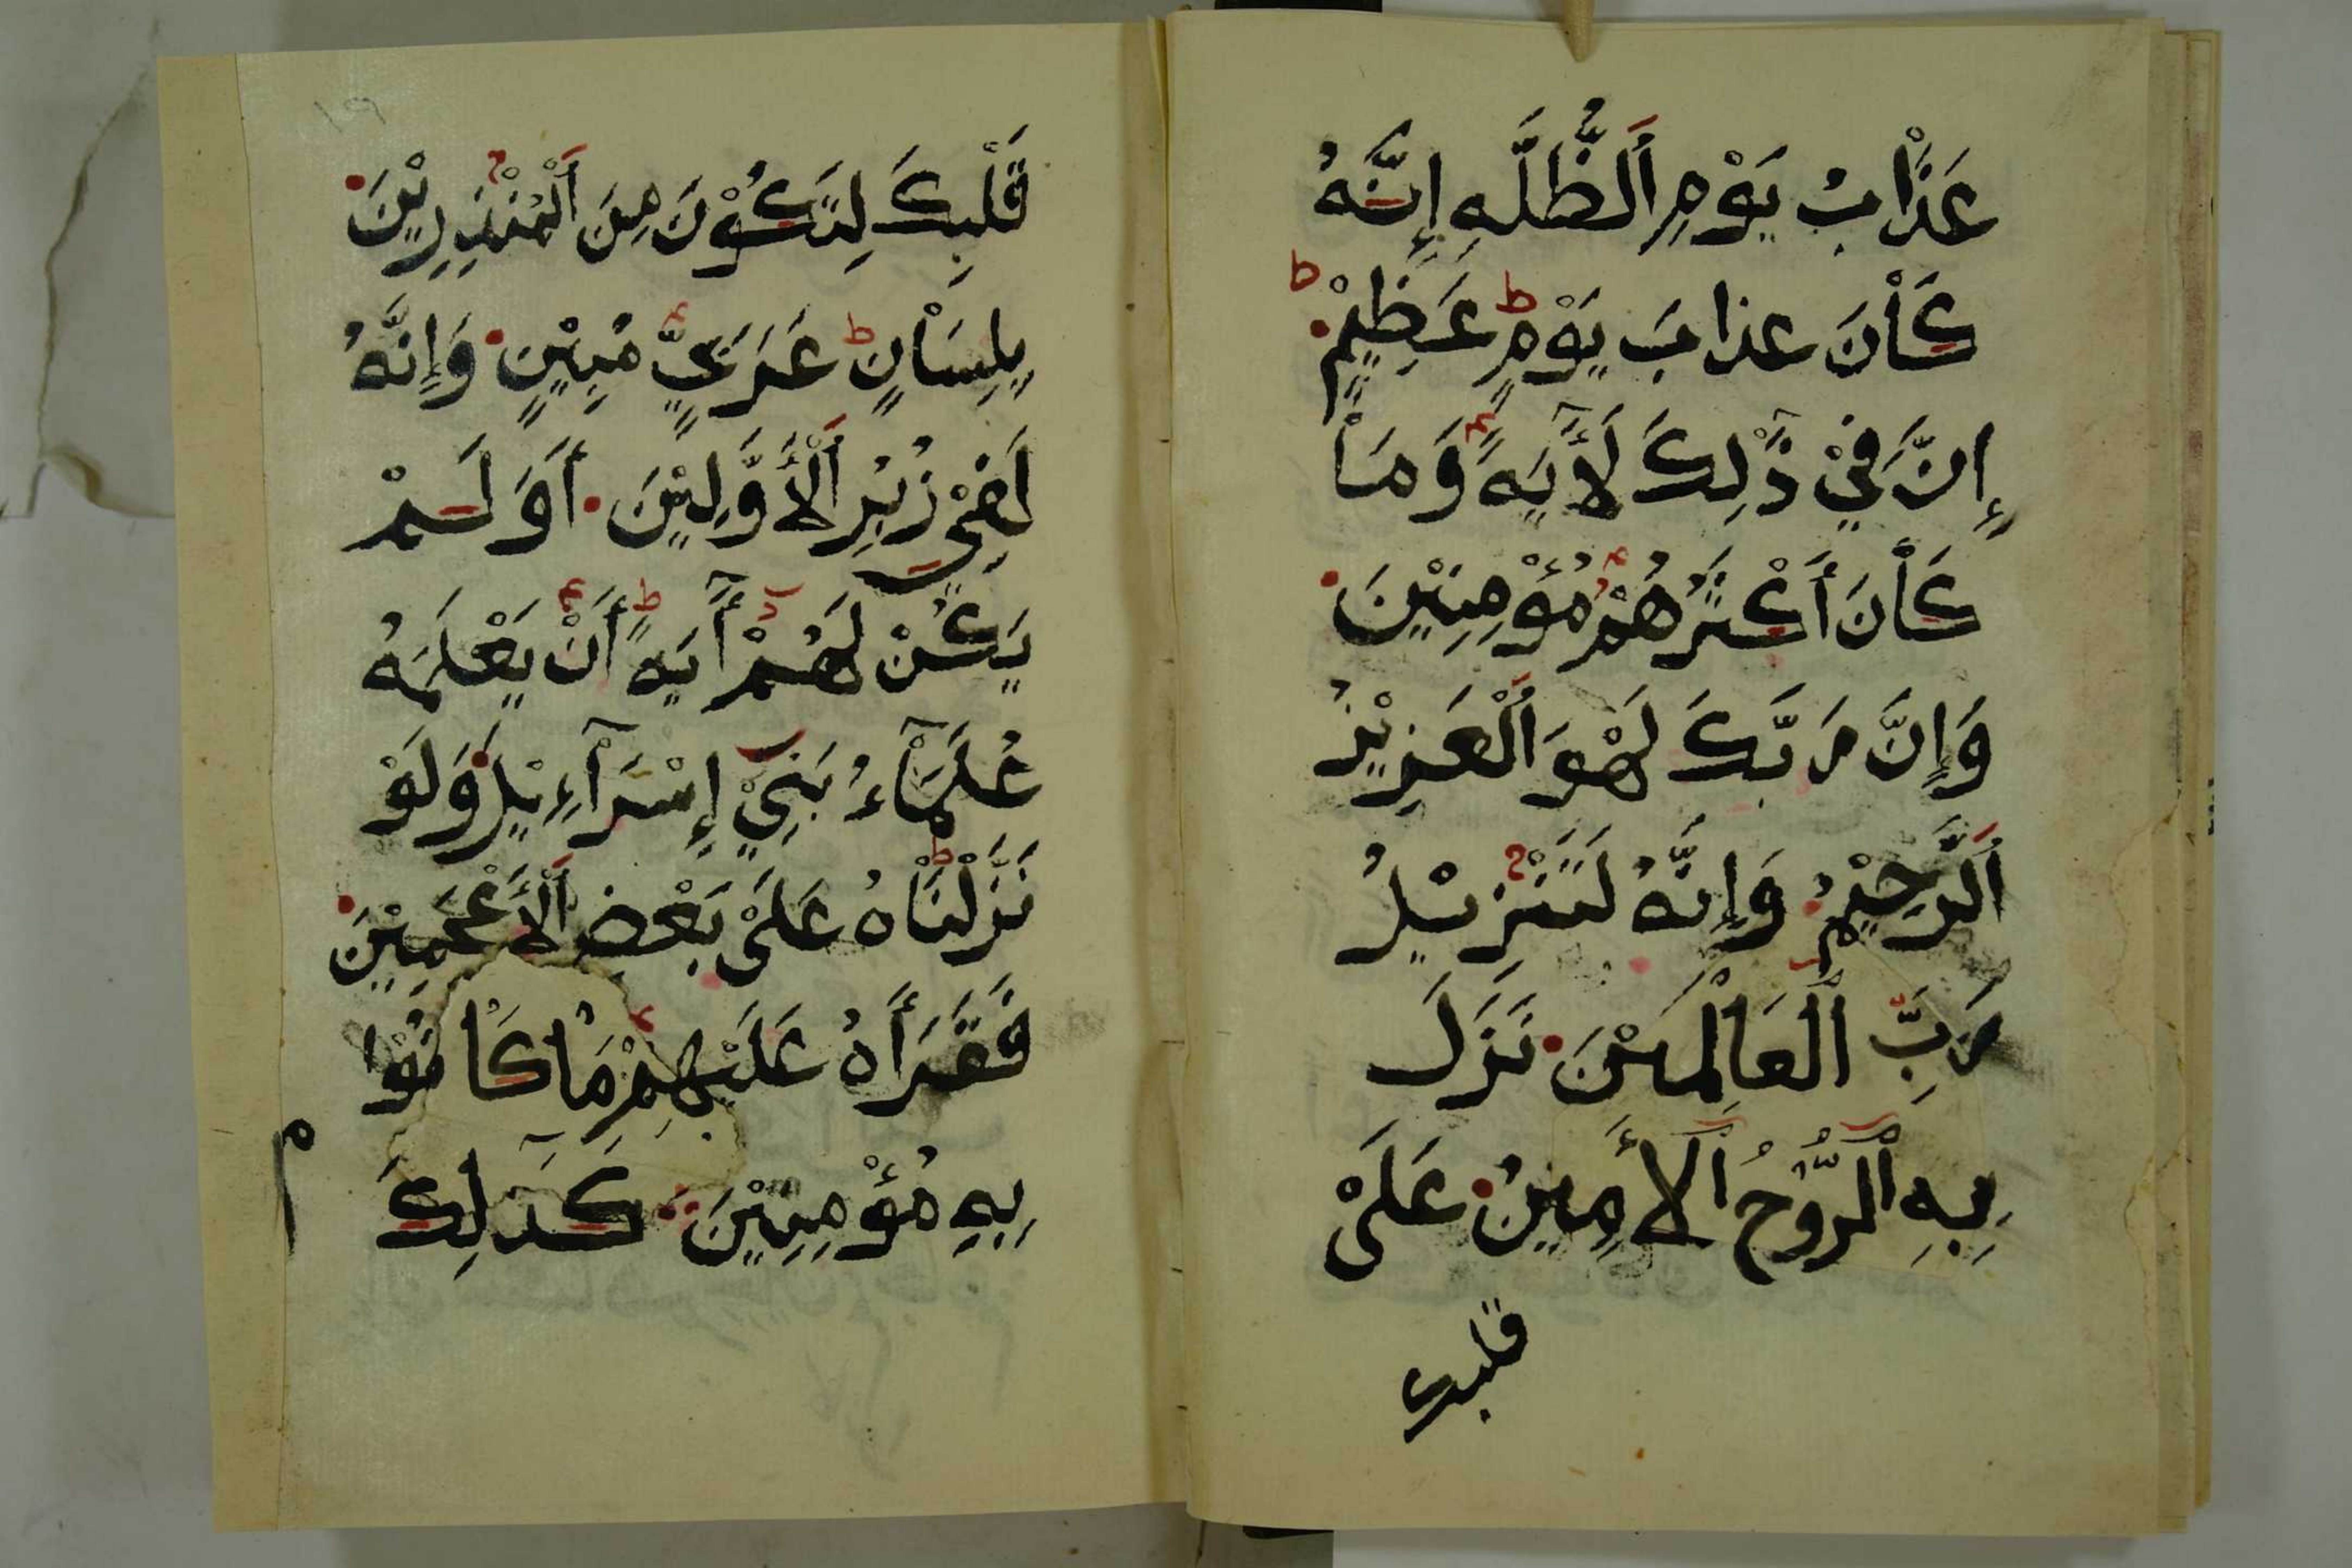 عَذَابُ يَوْمِ ٱلظُّلَّهِ إِنَّهُ
كَاْنَ عذابَ يَوْمٍ عَظِيْمٍ
إِنَّ فِيْ ذَٰلِكَ لَأٓيَهً وَمَاْ
كَاْنَ أَكْثَرُهُمْ مُؤْمِنِيْنَ
وَإِنَّ رَبَّكَ لَهْوَ ٱلْعَزِيْزُ
ٱلرَّحِيْمُ وَإِنَّهُ لَتَنْزِيْلُ
رَبِّ ٱلْعَاْلَمِيْنَ نَزَلَ
بِهِ ٱلرُّوْحُ ٱلأَمِيْنُ عَلَىْ
قلبك
١٩
قَلْبِكَ لِتَكُوْنَ مِنَ ٱلْمُنْذِرِيْنَ
بِلِسَاْنٍ عَرَبِيٍّ مُبِيْنٍ وَإِنَّهُ
لَفِيْ زُبُرِ ٱلْأَوَّلِيْنَ أَوَلَمْ
يَكُنْ لَهُمْ أٓيَهٍ أَنْ يَعْلَمَهُ
عُلَمَآْءُ بَنِيْ إِسْرَآءِيْلَ وَلَوْ
نَزَّلْنَاْهُ عَلَىْ بَعْضِ ٱلْأَعْجَمِيْنَ
فَقَرَأَهُ عَلَيْهِمْ مَاْ كَاْنُوْا
بِهِ مُؤْمِنِيْنَ كَذَٰلِكَ